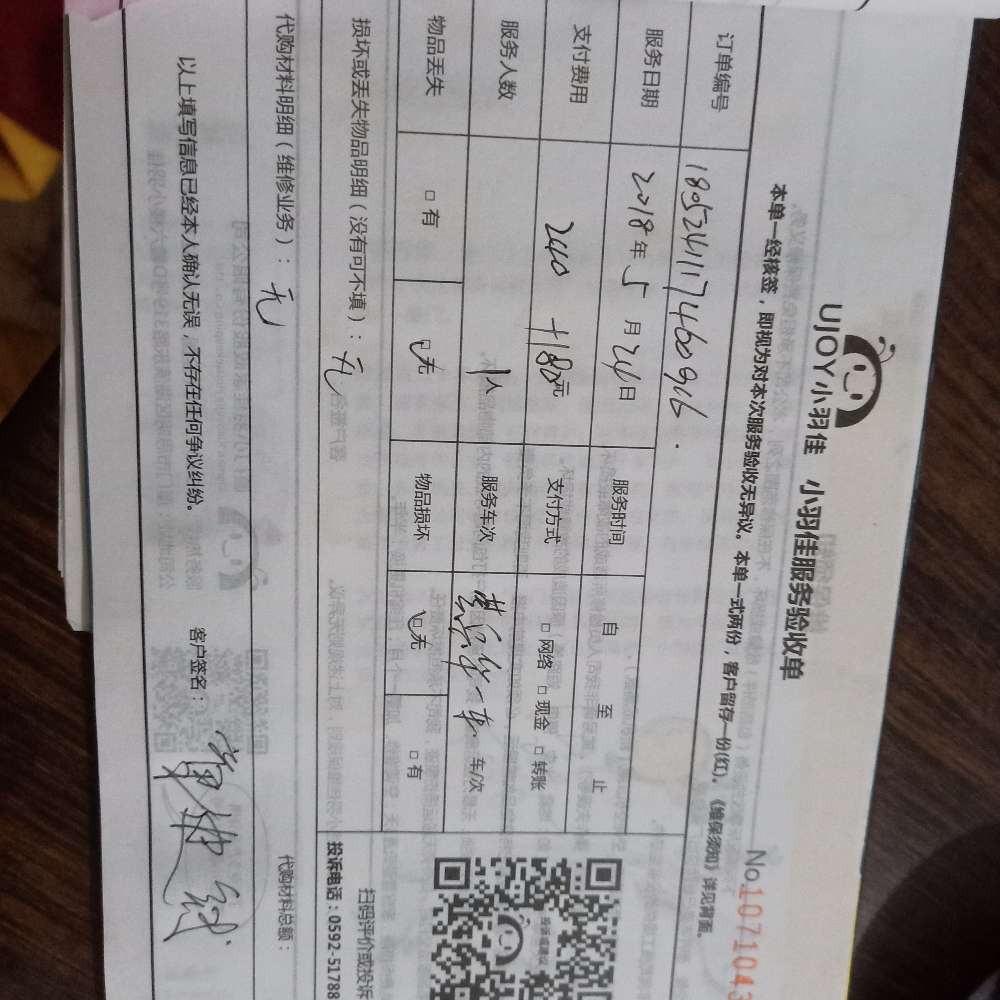 UJOY小羽佳 小羽佳服务验收单
本单一经核签，即视为对本次服务验收无异议。本单一式两份，客户留存一份(红)。《维保须知》详见背面。
No.1071043
订单编号 180524117460916
服务日期 2018年5月24日 服务时间 自 至 止
支付费用 240 +180元 支付方式 □网络 □现金 □转账
服务人数 1人 服务车次 一车 车/次
物品丢失 □有 ☑无 物品损坏 ☑无 □有
损坏或丢失物品明细（没有可不填）：无
扫码评价或投诉
投诉电话：0592-51788
代购材料明细（维修业务）：无
代购材料总额：
以上填写信息已经本人确认无误，不存在任何争议纠纷。 客户签名：